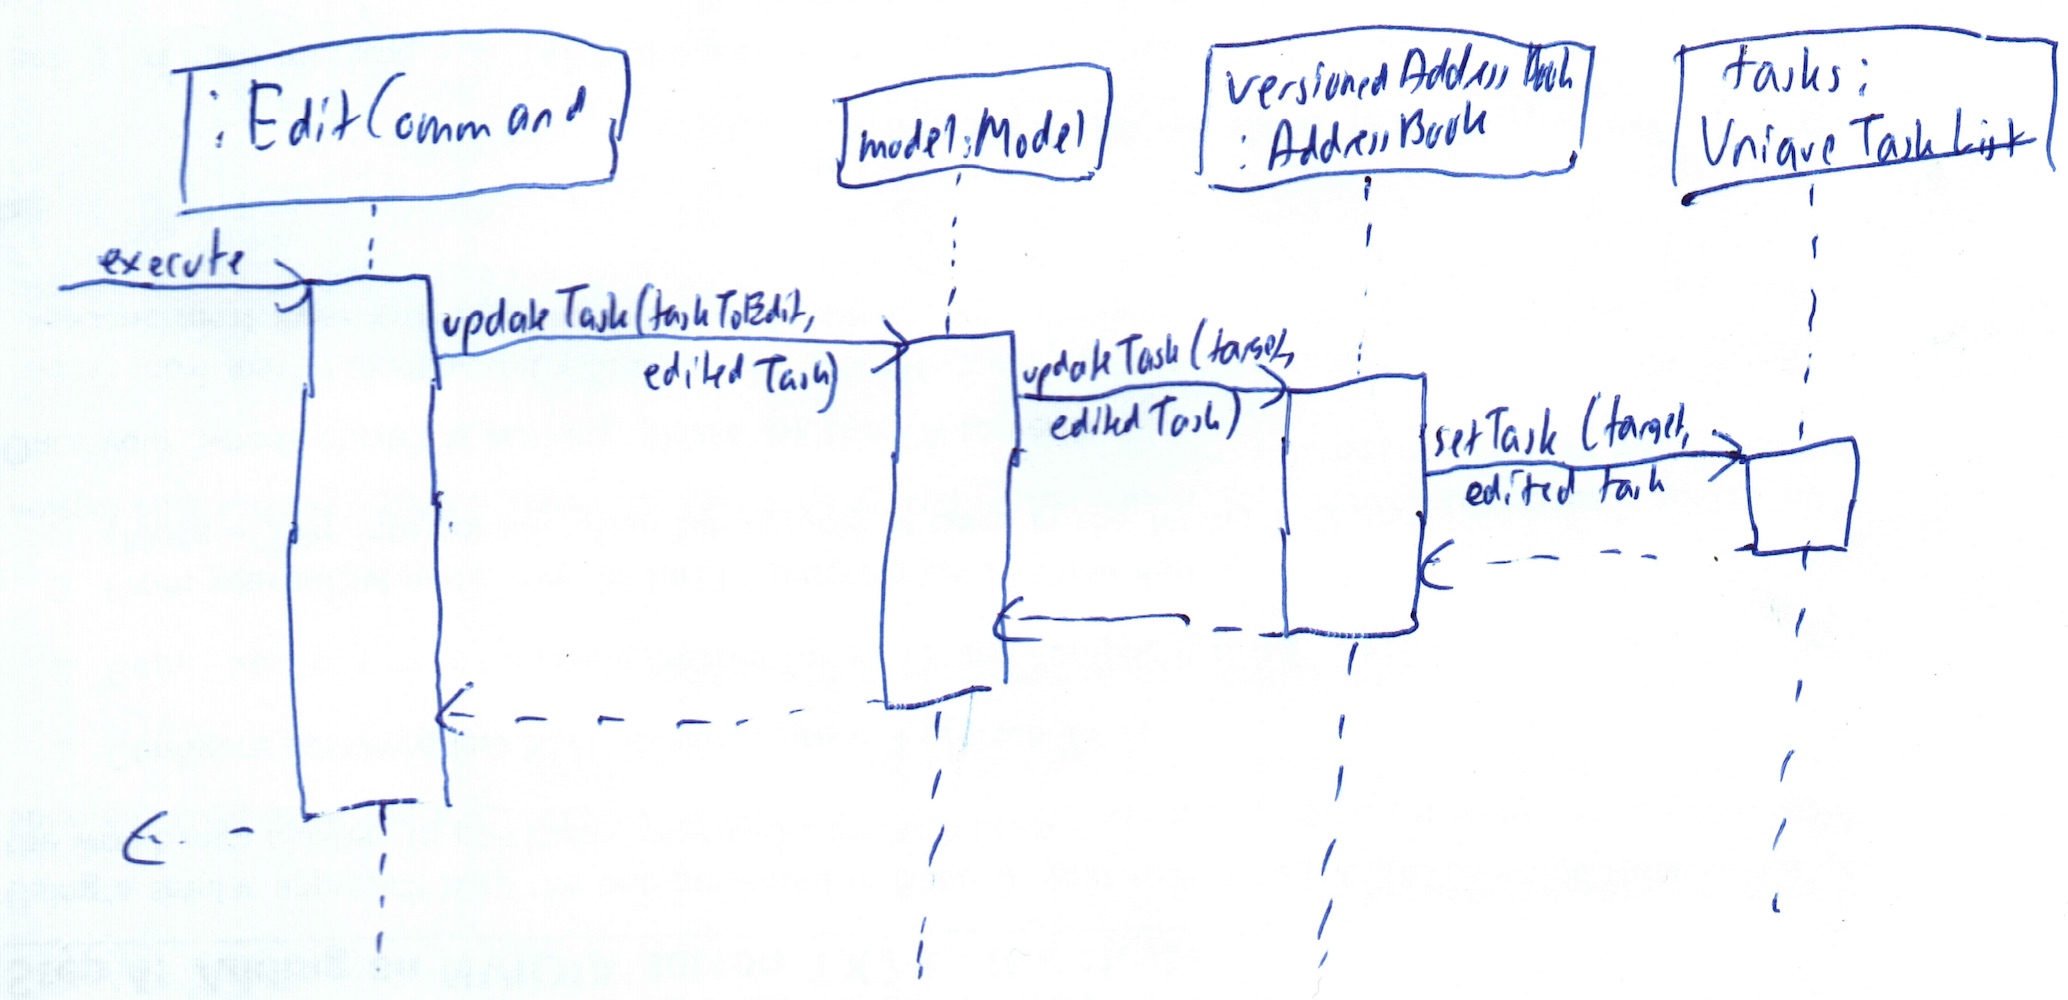 : EditCommand
model:Model
versioned Address Book
: AddressBook
tasks:
Unique Task List
execute
updateTask(taskToEdit,
editedTask)
updateTask(target,
editedTask)
setTask (target,
edited task